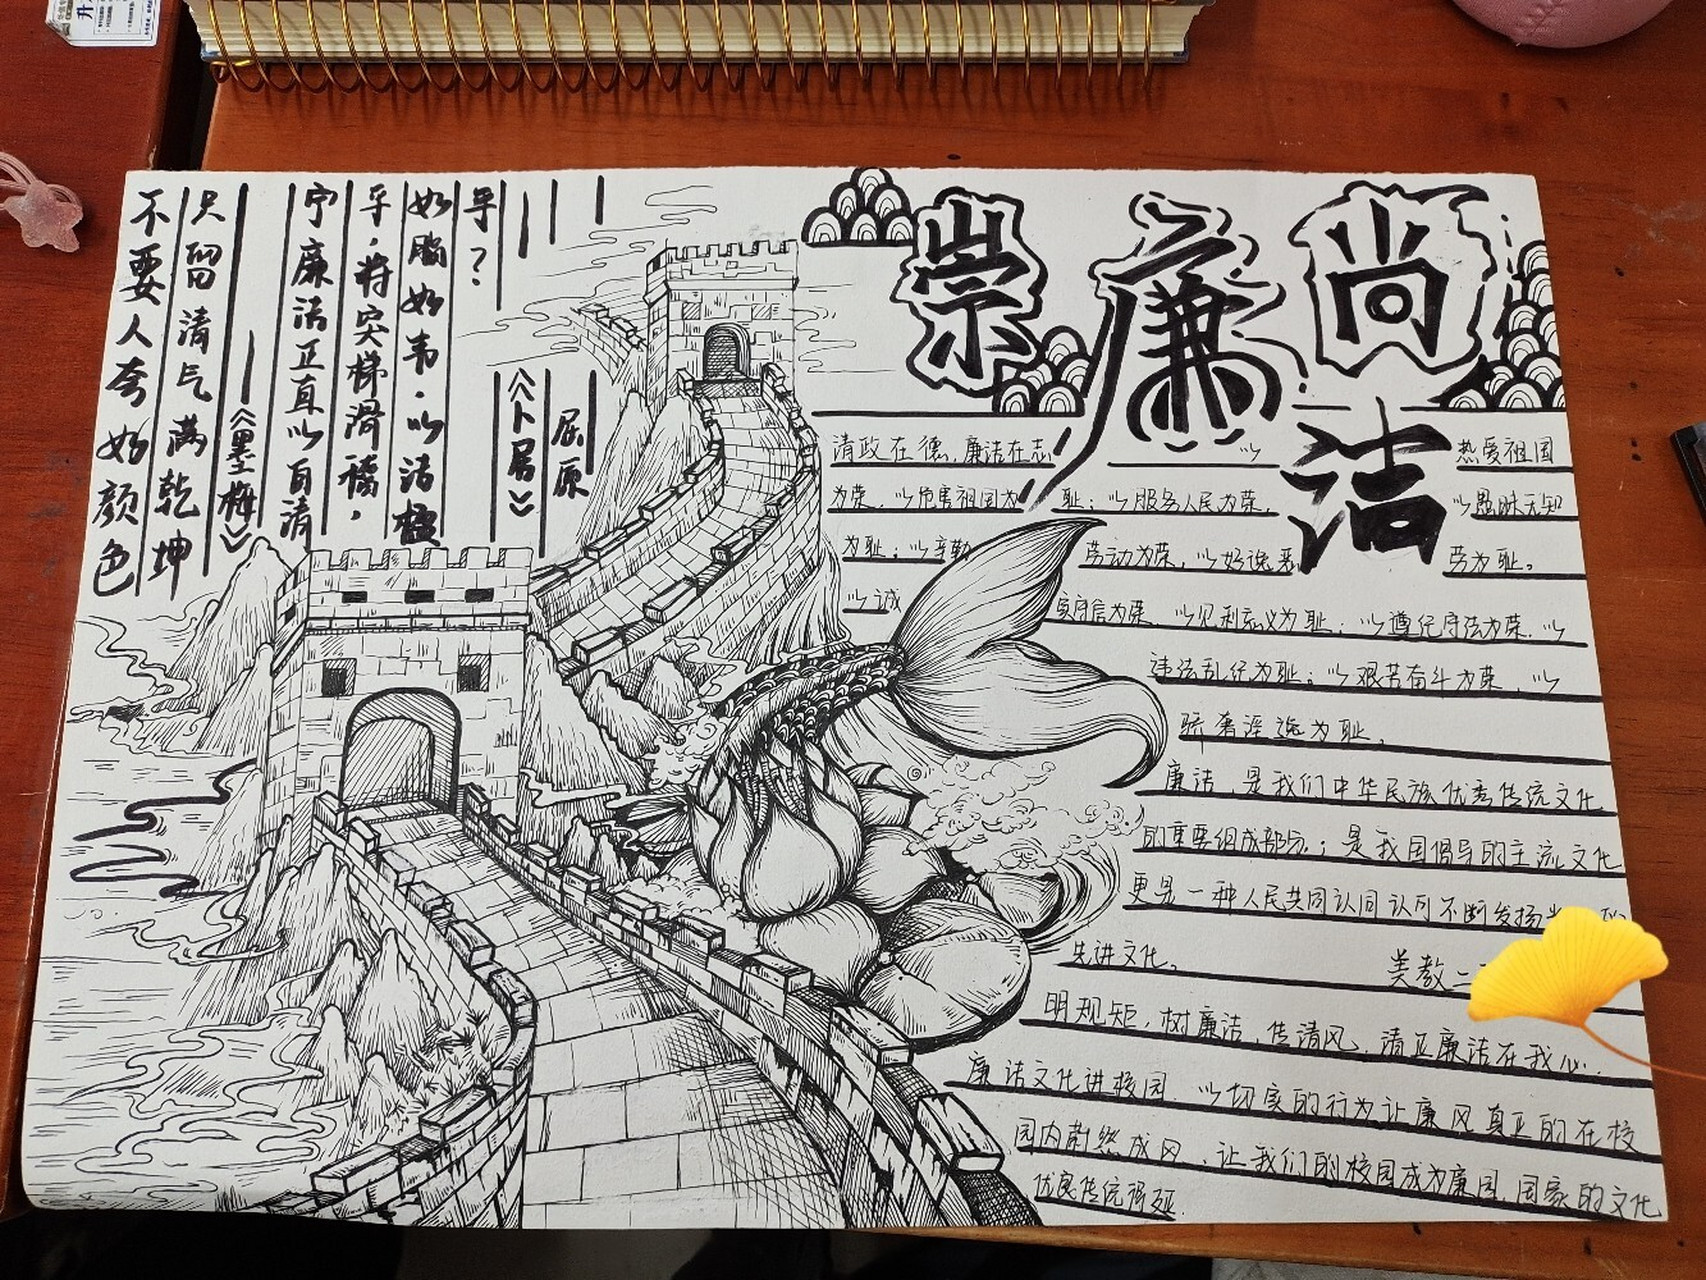 崇尚
廉洁
不要人夸好颜色
只留清气满乾坤
《墨梅》
宁廉洁正直以自清
乎,将突梯滑稽,
如脂如韦,以洁楹
乎?
《卜居》
屈原
清政在德,廉洁在志 以 热爱祖国
为荣,以危害祖国为耻;以服务人民为荣, 以愚昧无知
为耻;以辛勤劳动为荣,以好逸恶劳为耻。
以诚实守信为荣,以见利忘义为耻;以遵纪守法为荣,以
违法乱纪为耻。以艰苦奋斗为荣,以
骄奢淫逸为耻。
廉洁,是我们中华民族优秀传统文化
的重要组成部分;是我国倡导的主流文化
更是一种人民共同认同认可不断发扬
先进文化。 美教二
明规矩,树廉洁,传清风,清正廉洁在我心.
廉洁文化进校园,以切实的行为让廉风真正的在校
园内蔚然成风,让我们的校园成为廉园,国家的文化
优良传统得延